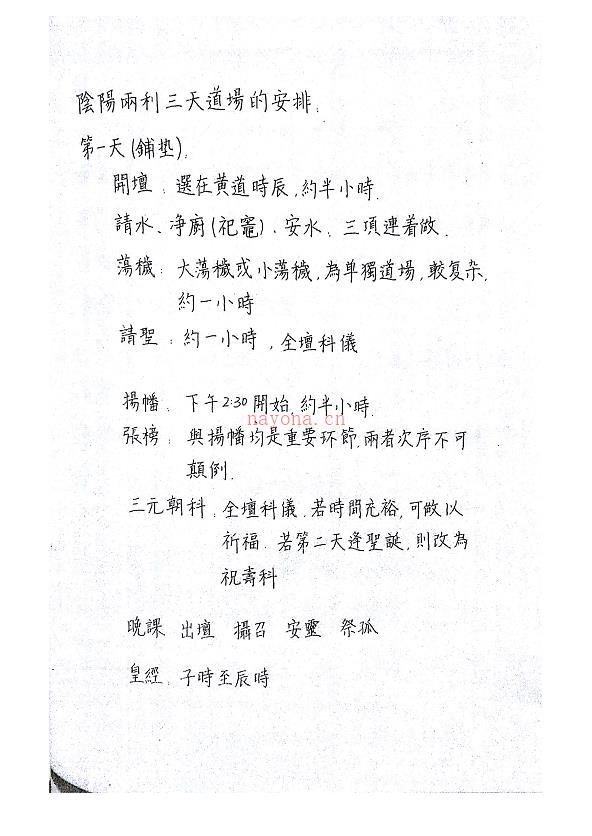 陰陽兩利三天道場的安排.
第一天(鋪垫).
開壇: 選在黄道時辰,約半小時.
請水、净廚(祀竈)、安水、三項連着做.
蕩穢: 大蕩穢或小蕩穢,為单獨道場,較复杂,
約一小時
請聖: 約一小時,全壇科儀
揚幡、下午2:30開始,約半小時.
nayona.cn
張榜: 與揚幡均是重要环節,兩者次序不可
顛倒.
三元朝科: 全壇科儀.若時間充裕,可做以
祈福.若第二天逢聖誕,則改為
祝壽科
晚課 出壇 攝召 安靈 祭孤
皇經: 子時至辰時